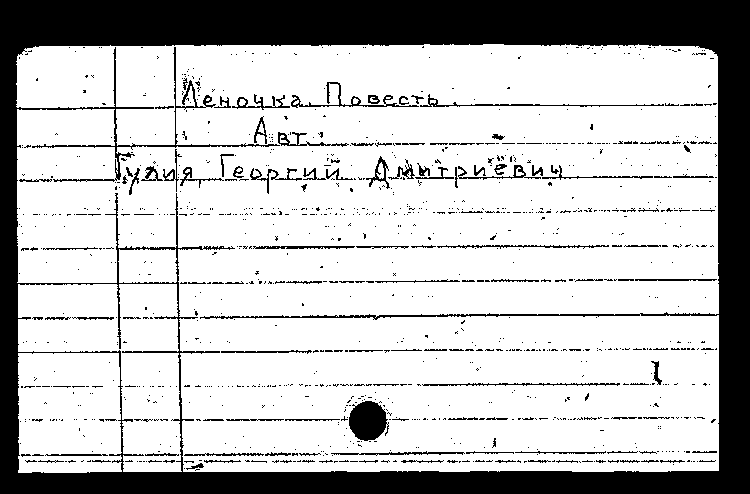 Леночка. Повесть.
Авт.:
Гулия, Георгий Дмитриевич